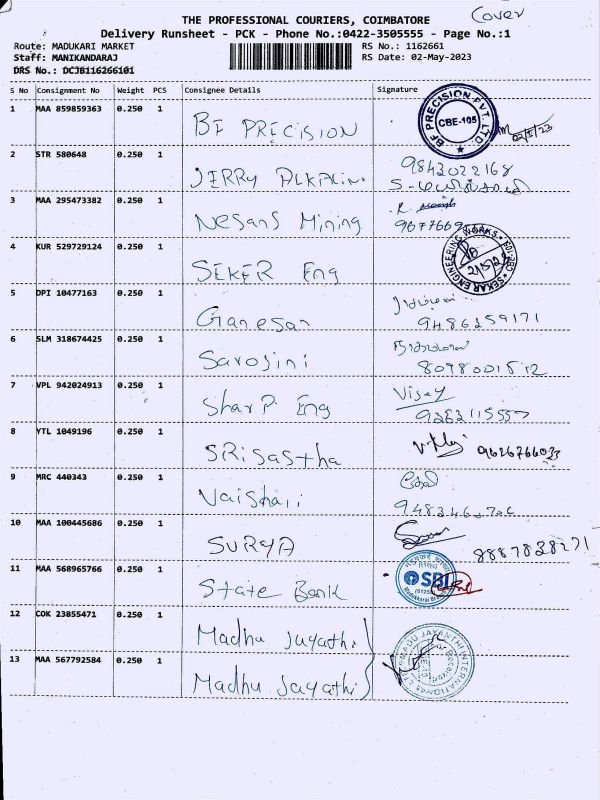 Cover
THE PROFESSIONAL COURIERS, COIMBATORE
Delivery Runsheet - PCK - Phone No.:0422-3505555 - Page No.:1
Route: MADUKARI MARKET RS No.: 1162661
Staff: MANIKANDARAJ RS Date: 02-May-2023
DRS No.: DCJB116266101
S No Consignment No Weight PCS Consignee Details Signature
1 MAA 859859363 0.250 1 BF PRECISION BF PRECISION PVT. LTD. CBE-105 02/5/23
2 STR 580648 0.250 1 JERRY 9843022168
3 MAA 295473382 0.250 1 Nesans Mining R.
4 KUR 529729124 0.250 1 SEKER Eng SEKAR ENGINEERING WORKS
5 DPI 10477163 0.250 1 Ganesan 9486259171
6 SLM 318674425 0.250 1 Sarojini
7 VPL 942024913 0.250 1 Sharp Eng Vijay
8 YTL 1049196 0.250 1 SRi Sastha
9 MRC 440343 0.250 1
10 MAA 100445686 0.250 1 SURYA
11 MAA 568965766 0.250 1 State Bank SBI
12 COK 23855471 0.250 1 Madhu Jayathi
13 MAA 567792584 0.250 1 Madhu Jayathi